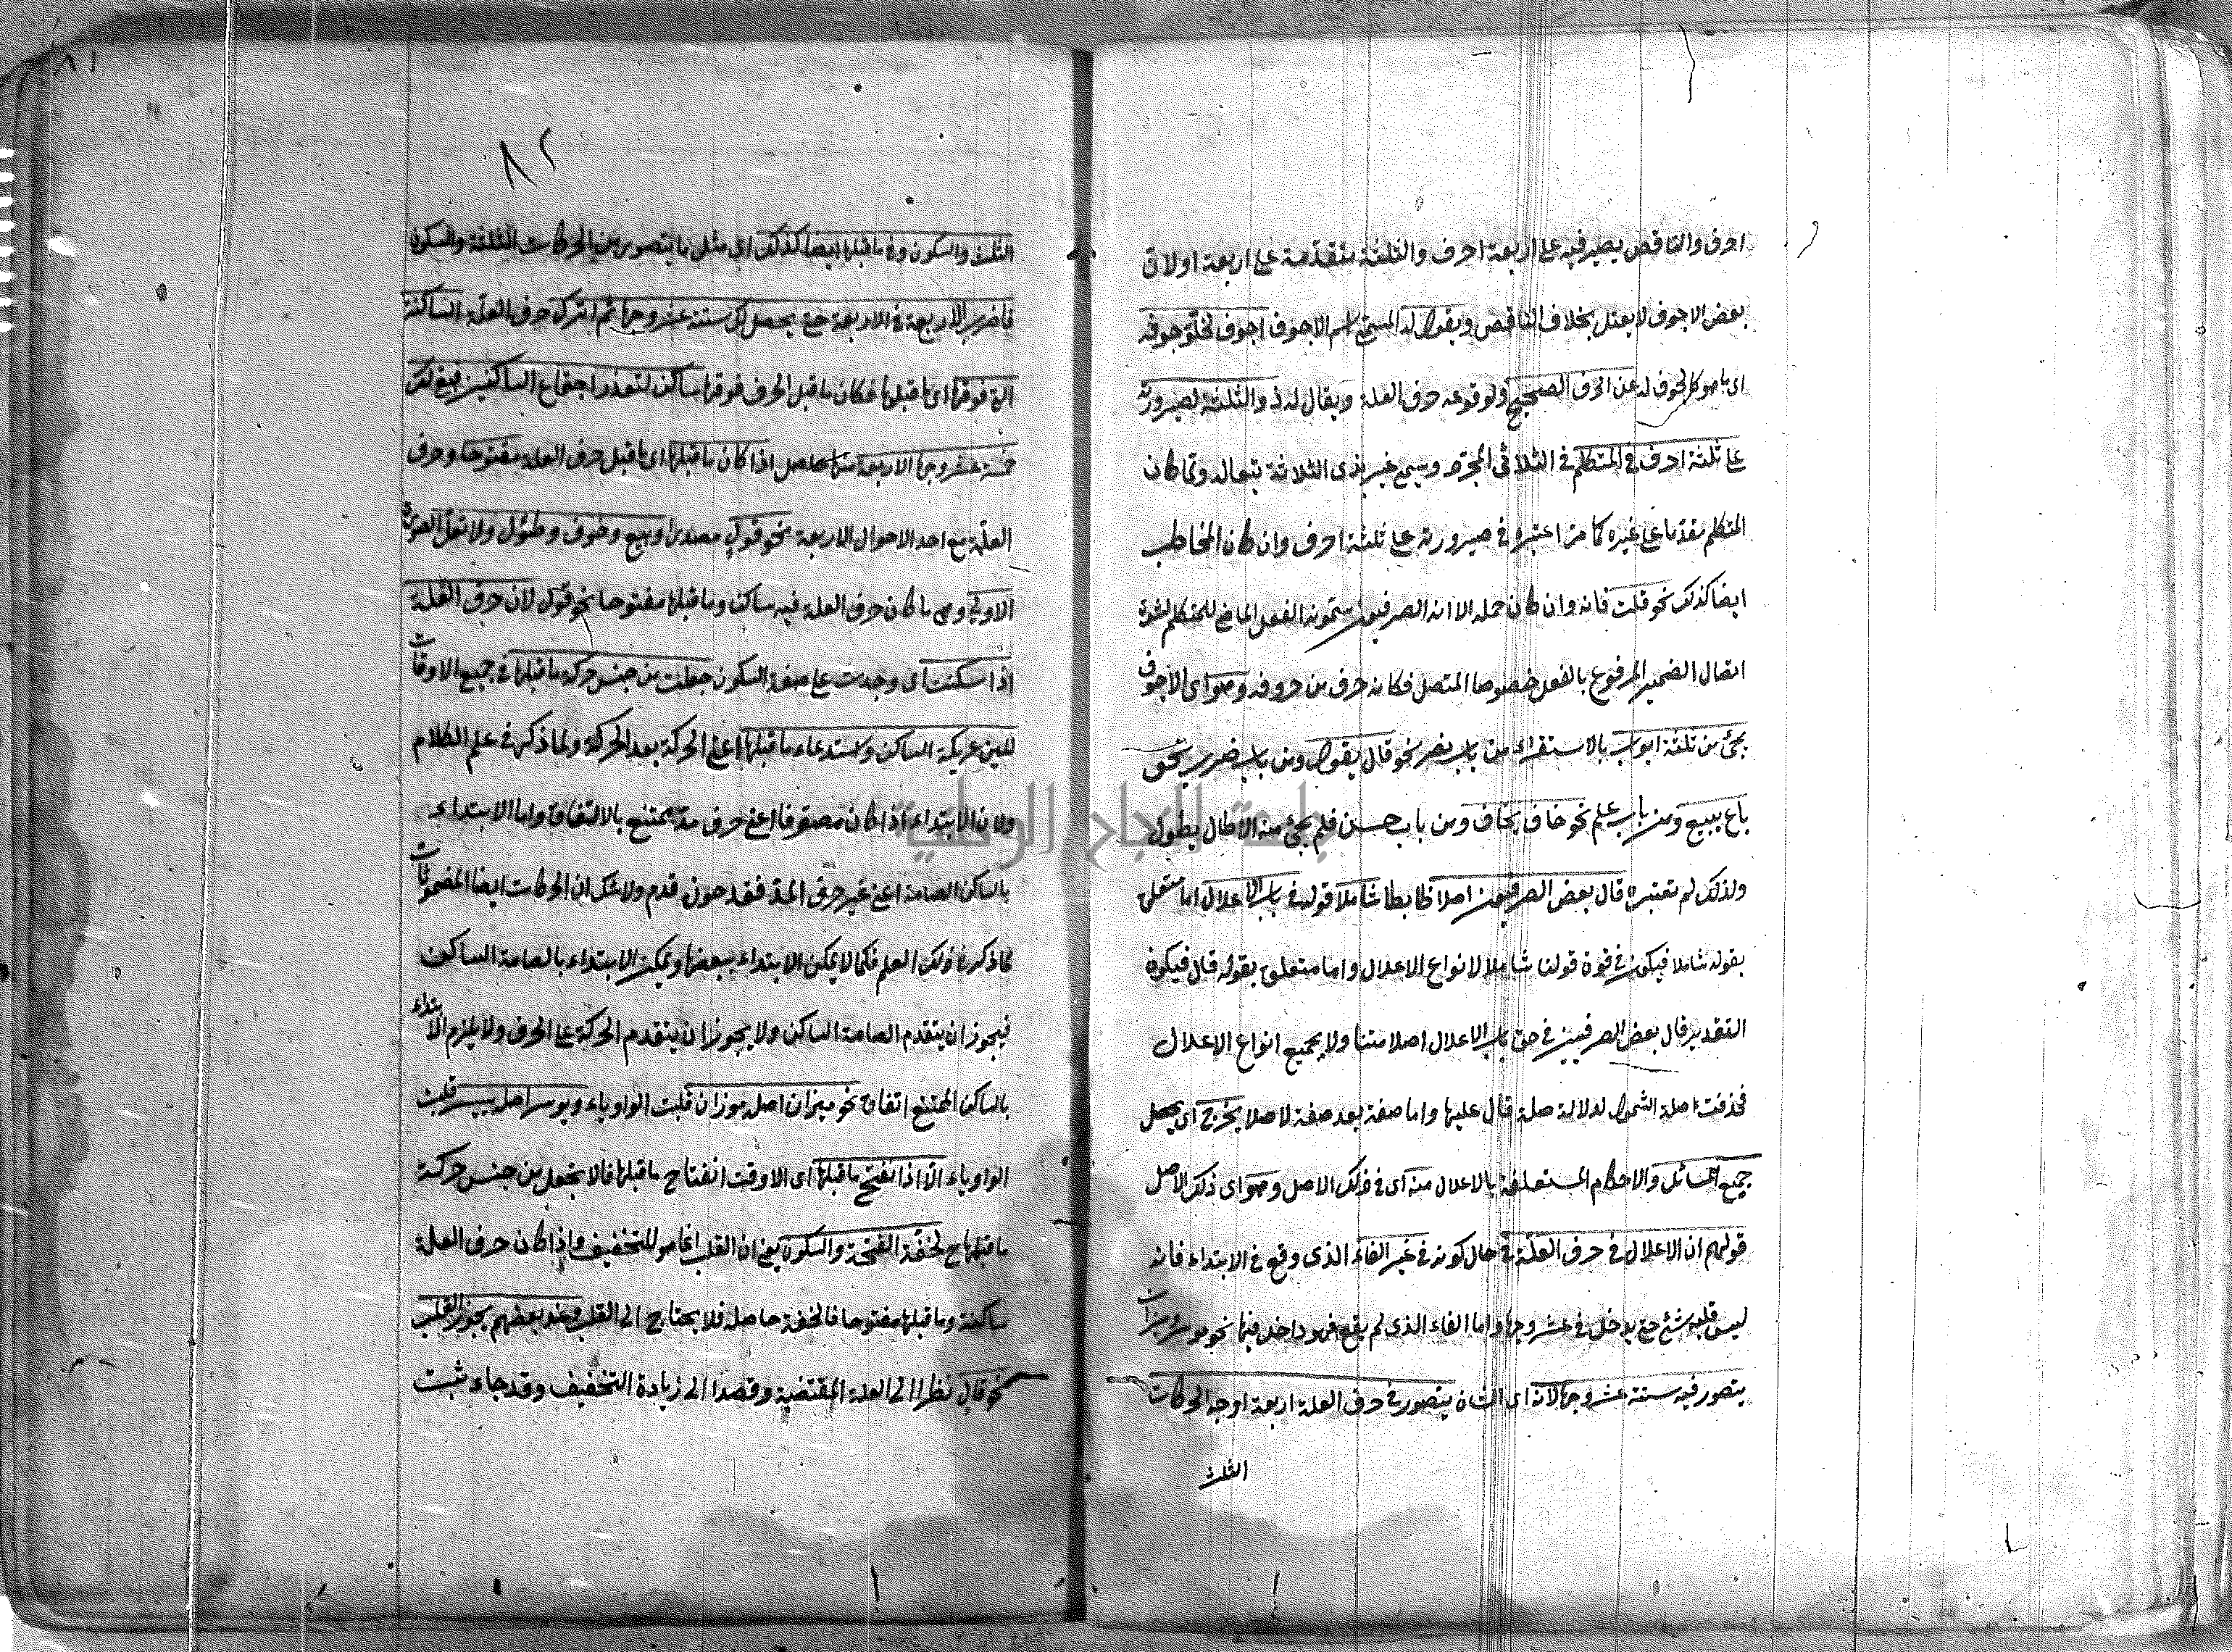 احرف والناقص يصير فيه على اربعة احرف والثلثة متقدمة على اربعة اولان
بعض الاجوف لا يعتل بخلاف الناقص ويقول له المسمى باسم الاجوف اجوف لخلو جوفه
اى ما هو كالجوف له عن الحرف الصحيح ولوقوعه حرف العلة ويقال له ذو الثلثة لصيرورته
على ثلثة احرف فى المتكلم فى الثلاثى المجرد وسمع غير بذى الثلاثة تبعا له ولما كان
المتكلم مقدما على غيره كما مر اعتبروا فى صيرورته على ثلثة احرف وان كان المخاطب
ايضا كذلك نحو قلت فانه وان كان جملة الا انه الصرفيون يسمونه الفعل الماضى للمتكلم لشدة
اتصال الضمير المرفوع بالفعل خصوصا المتصل فكانه حرف من حروفه وهو اى الاجوف
يجئ من ثلثة ابواب بالاستقراء من باب نصر نحو قال يقول ومن باب ضرب نحو
باع يبيع ومن باب علم نحو خاف يخاف ومن باب حسن فلم يجئ منه الا طال يطول
ولذلك لم تعتبره قال بعض الصرفيين اصلا ضابطا شاملا قوله فى باب الاعلال اما متعلق
بقوله شاملا فيكون فى قوة قولنا شاملا لانواع الاعلال واما متعلق بقوله قال فيكون
التقدير قال بعض الصرفيين فى حق باب الاعلال اصلا متنا ولا بجميع انواع الاعلال
فحذفت صلة الشمول لدلالة صلة قال عليها واما صفة بعد صفة لاصلا يخرج اى يحصل
جميع المسائل والاحكام المتعلقة بالاعلال منه اى فى ذلك الاصل وهو اى ذلك الاصل
قولهم ان الاعلال فى حرف العلة فى حال كونه فى غير الفاء الذى وقع فى الابتداء فانه
ليس قلبه بشئ حتى يدخل فى عشر وجها واما الفاء الذى لم يقع فهو داخل فيها نحو موسر وميزان
يتصور فيه ستة عشر وجها لانه اى الشان يتصور فى حرف العلة اربعة اوجه الحركات
الثلث
٨٢
الثلث والسكون وفى ما قبلها ايضا كذلك اى مثل ما يتصور من الحركات الثلثة والسكون
فاضرب الاربعة فى الاربعة حتى يحصل لك ستة عشر وجها ثم اترك حرف العلة الساكنة
التى فوقها اى ما قبلها فكان ما قبل الحرف فوقها ساكن لتعذر اجتماع الساكنين فبقى لك
خمسة عشر وجها الاربعة منها حاصل اذا كان ما قبلها اى ما قبل حرف العلة مفتوحا وحرف
العلة مع احد الاحوال الاربعة نحو قول مصدرا وبيع وخوف وطول ولا تعل الصورة
الاولى وهى ما كان حرف العلة فيه ساكنا وما قبلها مفتوحا نحو قول لان حرف العلة
اذا سكنت اى وجدت على صفة السكون جعلت من جنس حركة ما قبلها فى جميع الاوقات
للين عريكة الساكن واستدعاء ما قبلها اعنى الحركة بعد الحركة ولما ذكر فى علم الكلام
ولان الابتداء اذا كان مصوتا اعنى حرف مد ممتنع بالاتفاق واما الابتداء
بالساكن الصامة اعنى غير حرف المد فقد جوزه قوم ولا شك ان الحركات ايضا المصوتات
كما ذكر فى ذلك العلم فكما لا يمكن الابتداء ببعضها ويمكن الابتداء بالصامة الساكن
فيجوز ان يتقدم الصامة الساكن ولا يجوز ان يتقدم الحركة على الحرف ولا يلزم الابتداء
بالساكن الممتنع اتفاق نحو ميزان اصله موزان قلبت الواو ياء ويوسر اصله ييسر قلبت
الواو ياء الا اذا انفتح ما قبلها اى الا وقت انفتاح ما قبلها فالا يجعل من جنس حركة
ما قبلها ح لخفة الفتحة والسكون يعنى ان القلب انما هو للتخفيف واذا كان حرف العلة
ساكنة وما قبلها مفتوحا فالخفة حاصلة فلا يحتاج الى القلب وعند بعضهم يجوز القلب
نحو قال نظرا الى العلة المقتضية وقصدا الى زيادة التخفيف وقد جاء ثبت
جامعة النجاح الوطنية